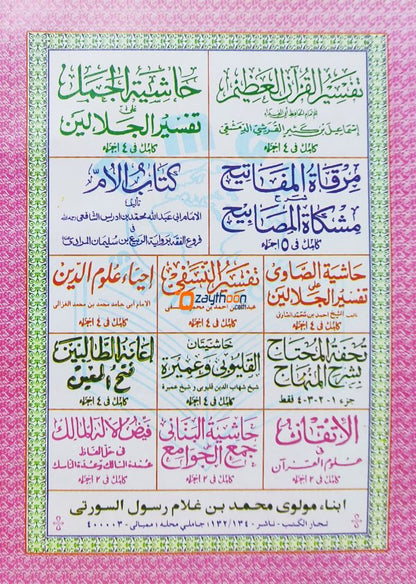 تفسير القرآن العظيم
للإمام الحافظ أبو الفداء
إسماعيل بن كثير القرشي الدمشقي
كامل فى ٤ اجزاء
حاشية الجمل
على
تفسير الجلالين
كامل فى ٤ اجزاء
مرقاة المفاتيح
شرح
مشكاة المصابيح
كامل فى ٥ اجزاء
كتاب الأم
تأليف
الامام ابى عبد الله محمد بن ادريس الشافعى
فى
فروع الفقه برواية الربيع بن سليمان المرادى
كامل فى ٤ اجزاء
حاشية الصاوى
على
تفسير الجلالين
الشيخ احمد بن محمد الصاوى
كامل فى ٤ اجزاء
تفسير النسفى
عبدالله بن احمد بن محمود النسفى
كامل فى ٤ اجزاء
إحياء علوم الدين
الامام أبى حامد محمد بن محمد الغزالى
كامل فى ٤ اجزاء
zaythoon
تحفة المحتاج
بشرح المنهاج
جزء ١-٢-٣-٤ فقط
حاشيتان
القليوبى وعميرة
شيخ شهاب الدين قليوبى و شيخ عميرة
كامل فى ٤ اجزاء
إعانة الطالبين
فتح المعين
كامل فى ٤ اجزاء
الإتقان
فى
علوم القرآن
كامل فى ٢ اجزاء
حاشية البنانى
على
جمع الجوامع
كامل فى ٢ اجزاء
فيض الإله المالك
فى حل الفاظ
عمدة السالك وعدة الناسك
كامل فى ٢ اجزاء
ابناء مولوى محمد بن غلام رسول السورتى
تجار الكتب - ناشر - ١٣٢/١٣٤؛ جاملي محله؛ ممبائى - ٤٠٠٠٠٣